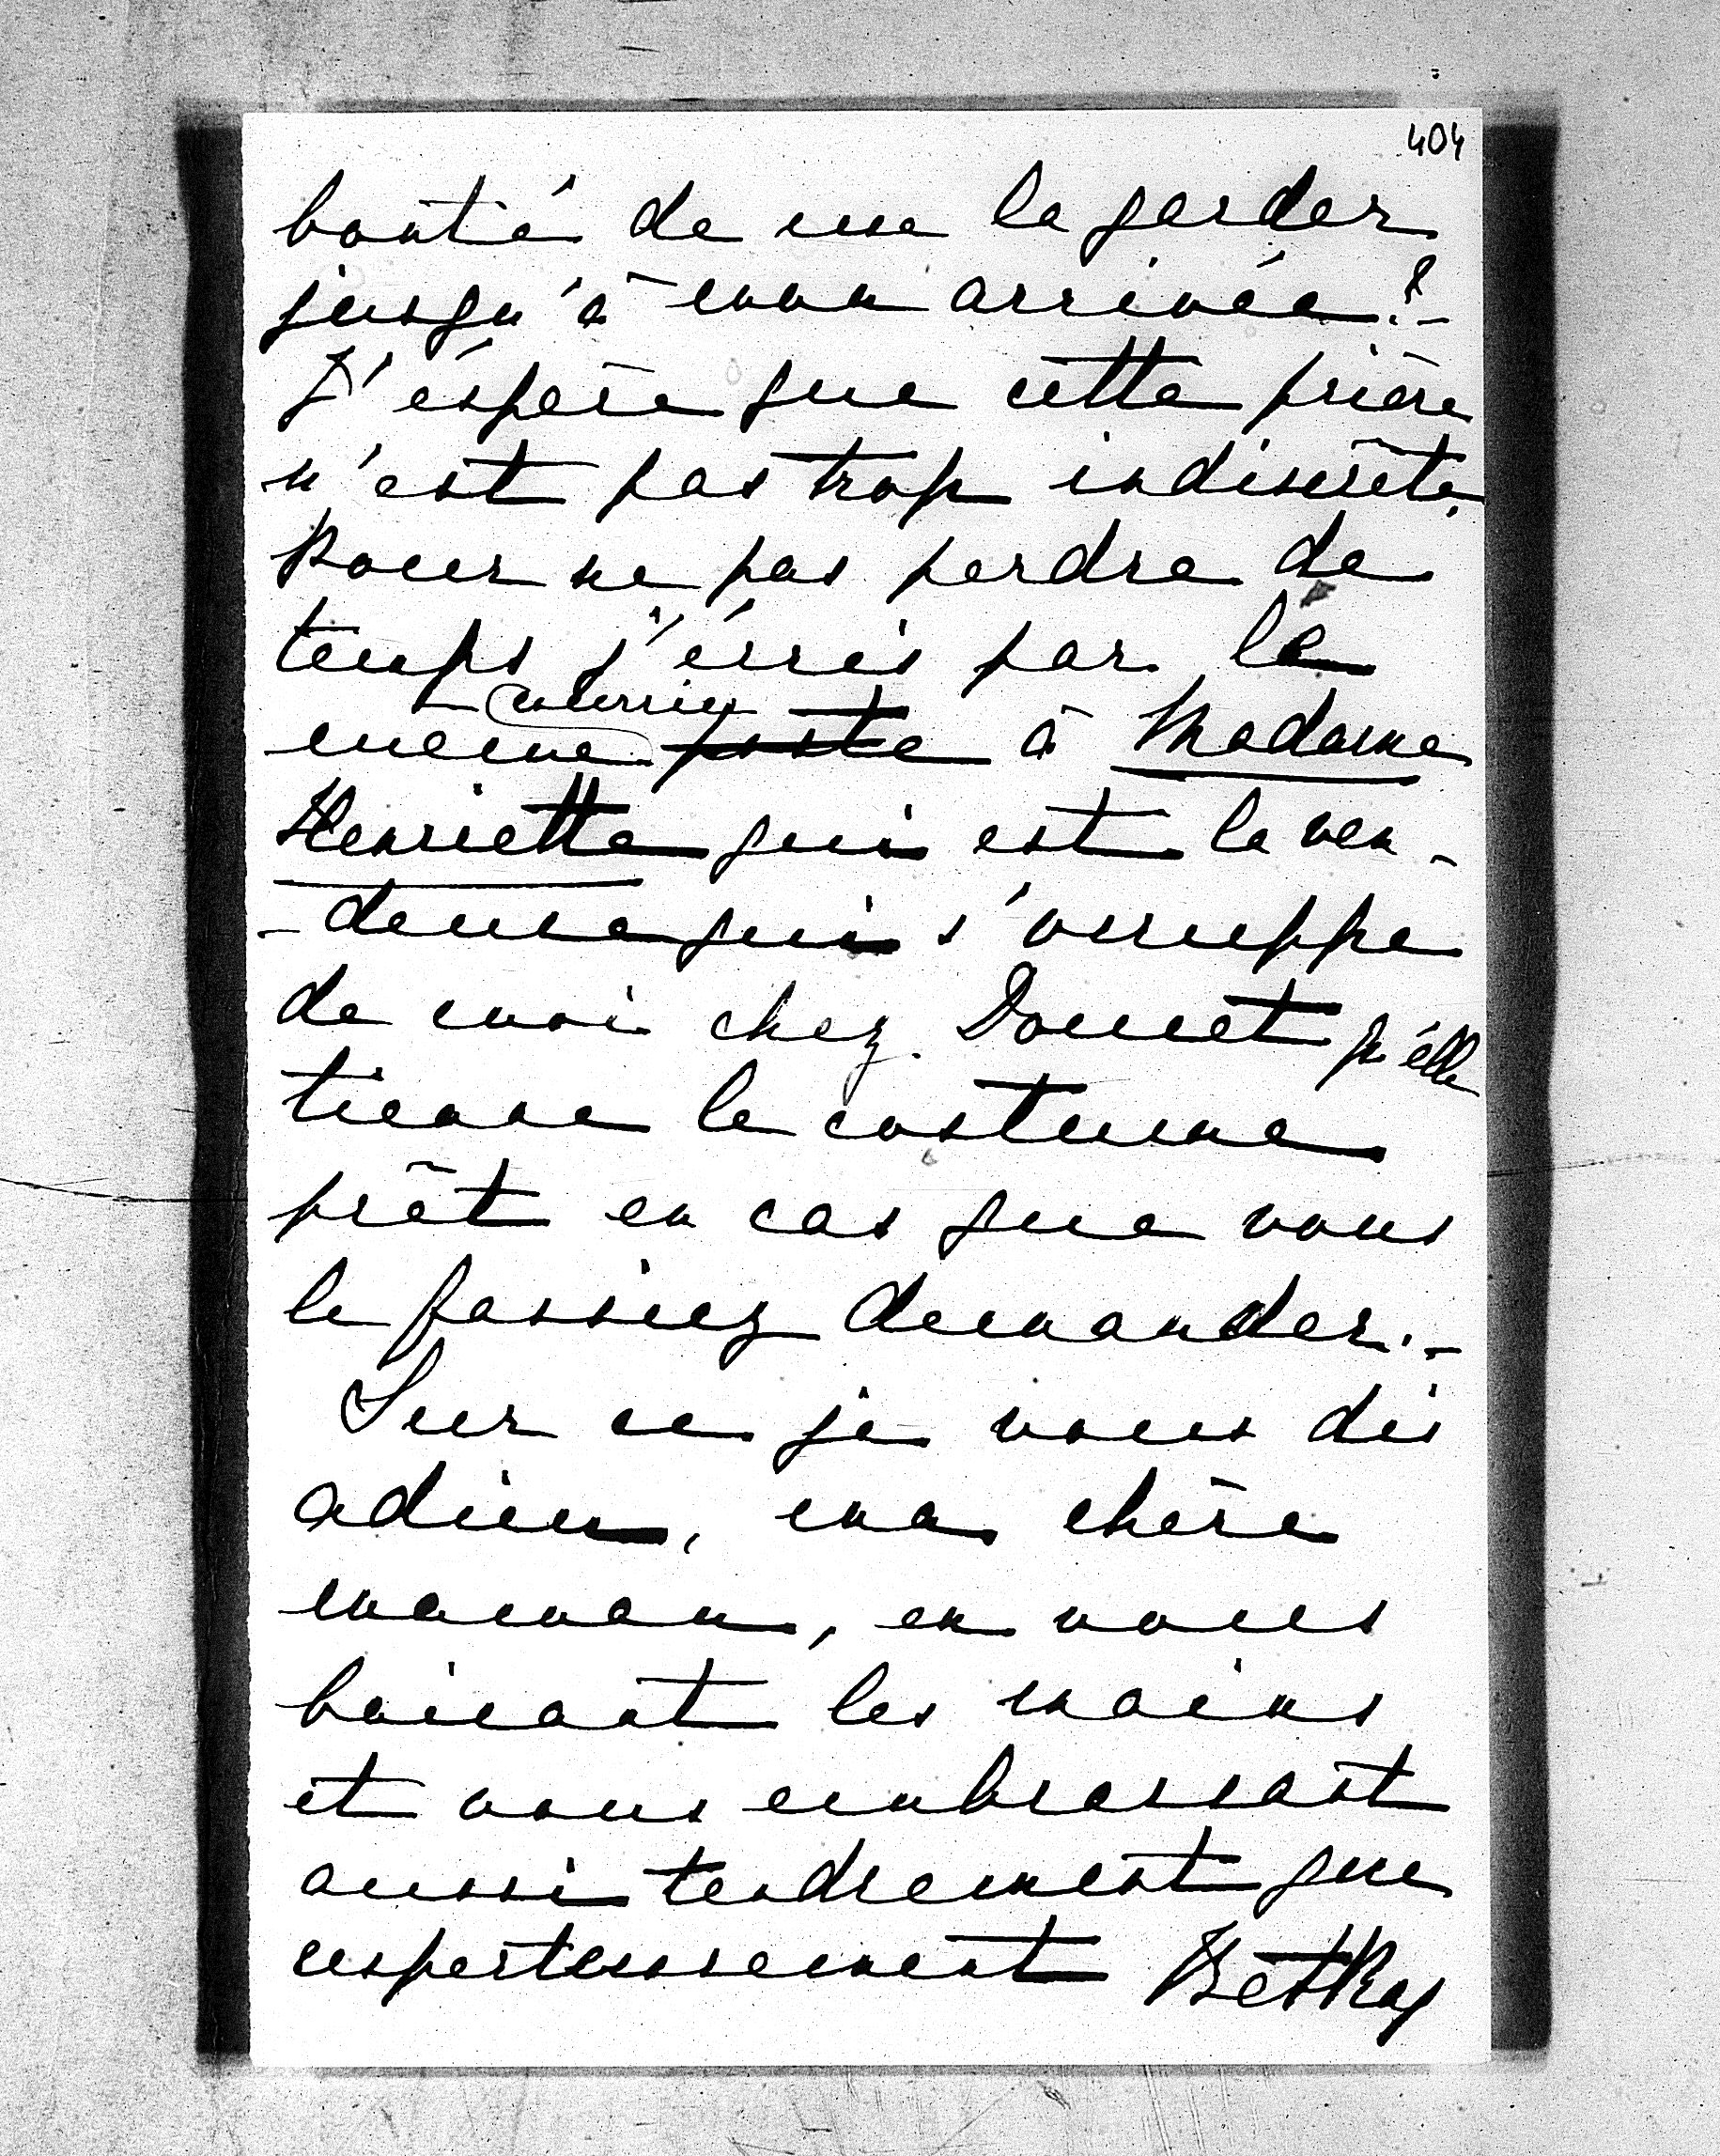 404
bonté de me le garder
jusqu'à mon arrivée?-
J'éspère que cette prière
n'est pas trop indiscrète.
Pour ne pas perdre de
temps j'écris par le
courrier
même poste à Madame
Henriette qui est la ven-
-deuse qui s'occuppe
de moi chez Doucet qu'elle
tienne le costume
prêt en cas que vous
le fassiez demander.-
Sur ce je vous dis
adieu, ma chère
maman, en vous
baisant les mains
et vous embrassant
aussi tendrement que
respectueusement Betka